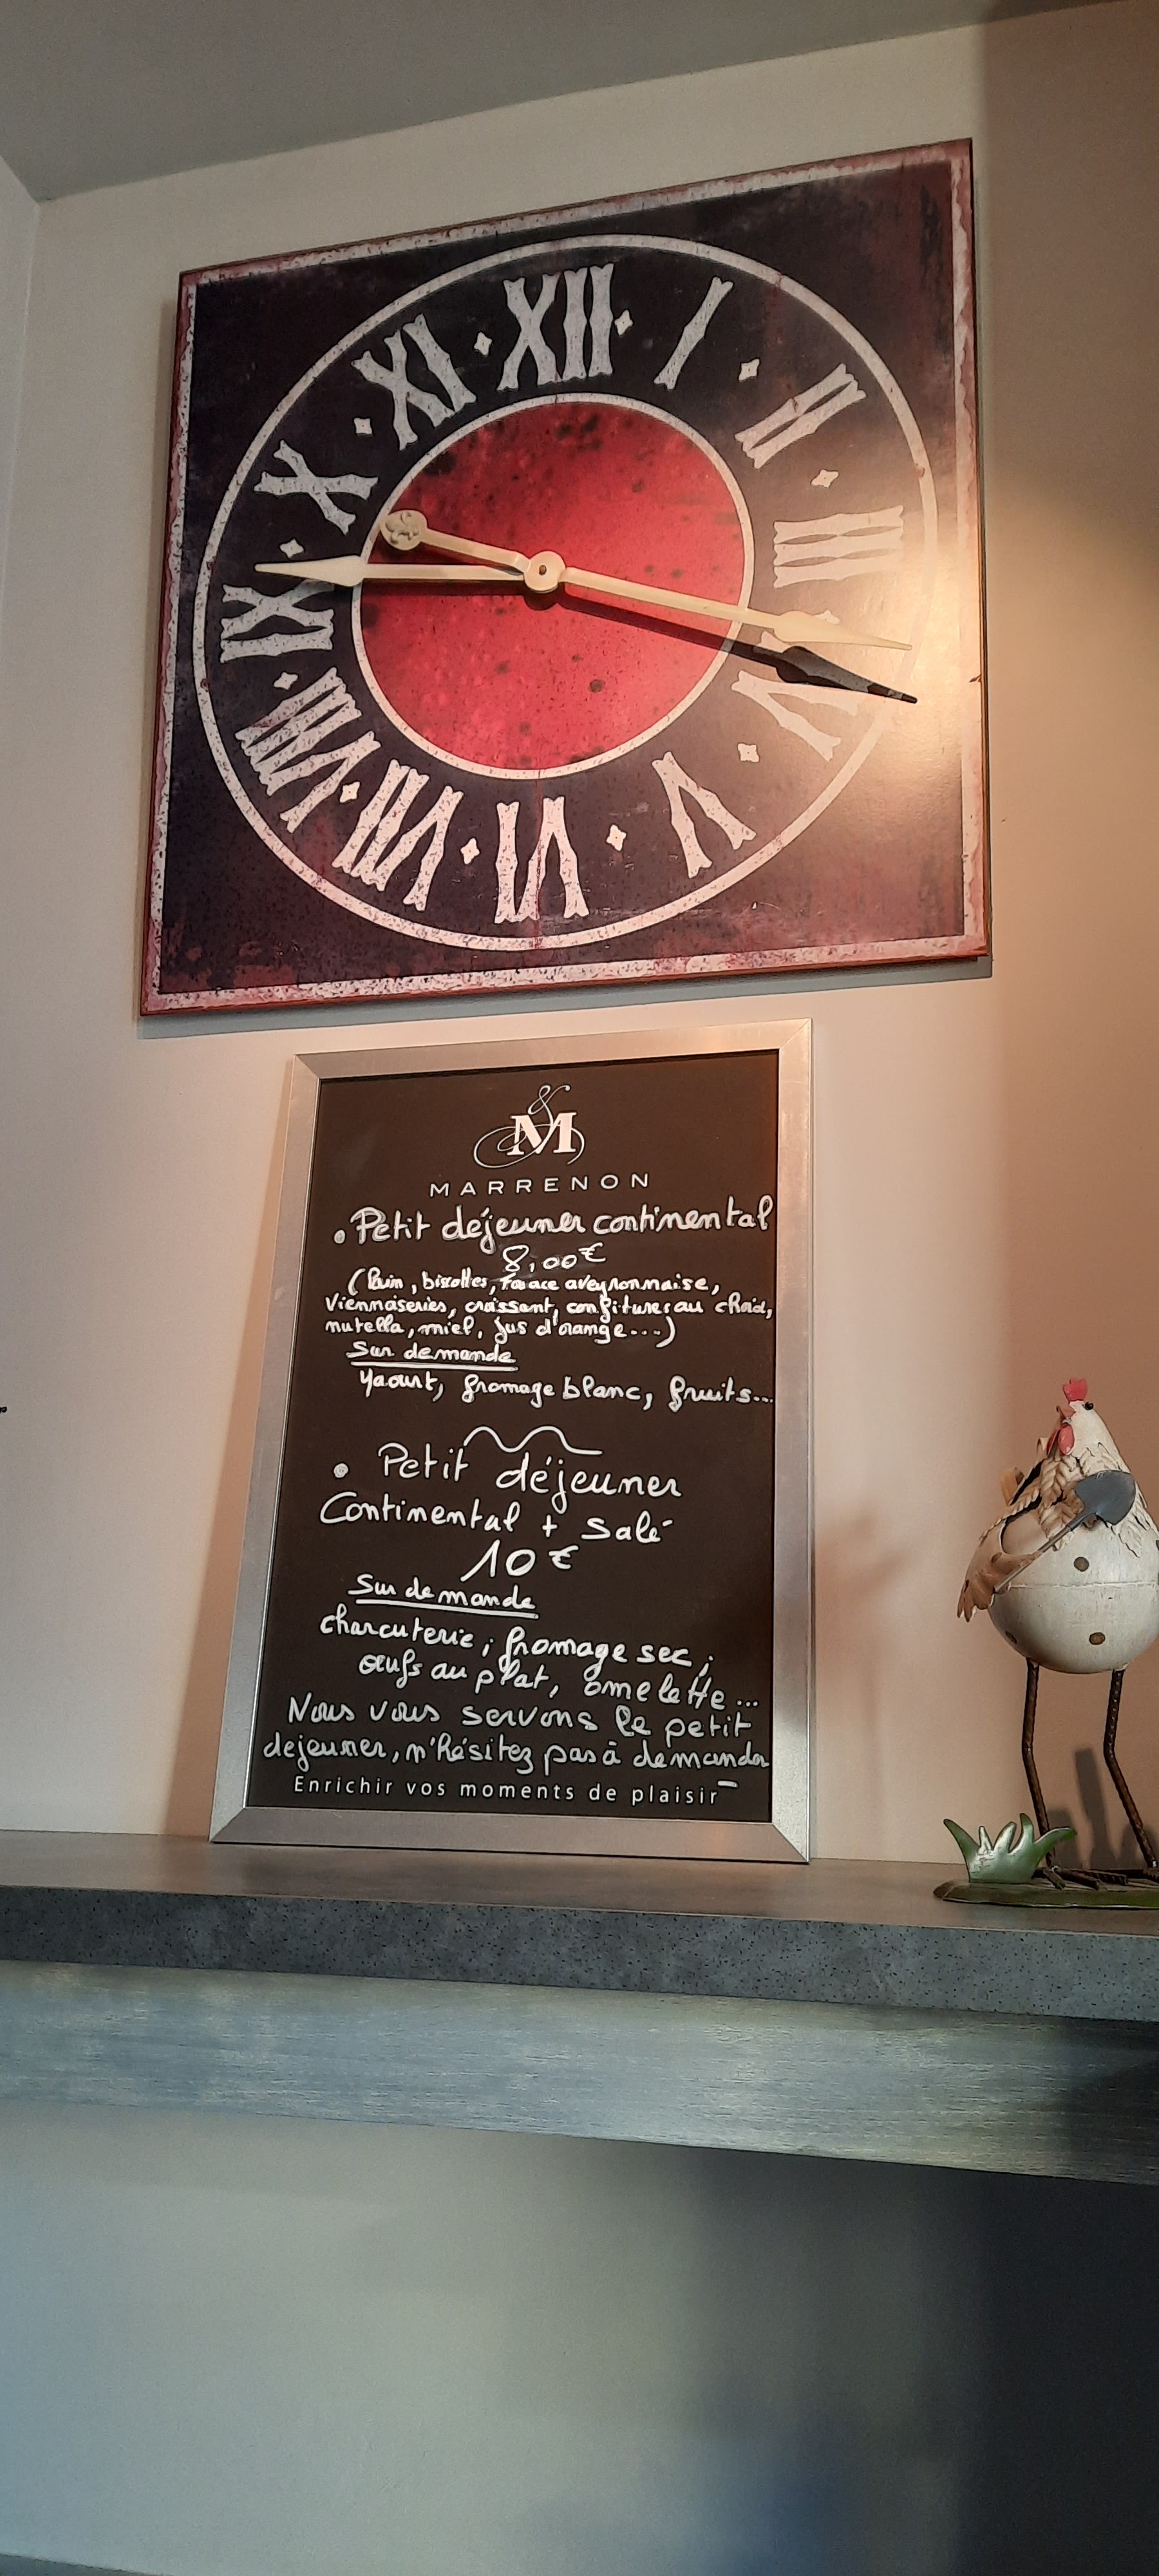 XII
I
II
III
IV
V
VI
VII
VIII
IX
X
XI
M
MARRENON
• Petit déjeuner continental
8,00€
(Pain, biscottes, Fouace aveyronnaise,
Viennoiseries, croissant, confitures au choix,
nutella, miel, jus d'orange...)
Sur demande
Yaourt, fromage blanc, fruits...
• Petit déjeuner
Continental + salé
10€
Sur demande
charcuterie, fromage sec,
œufs au plat, omelette...
Nous vous servons le petit
dejeuner, n'hésitez pas à demander
Enrichir vos moments de plaisir